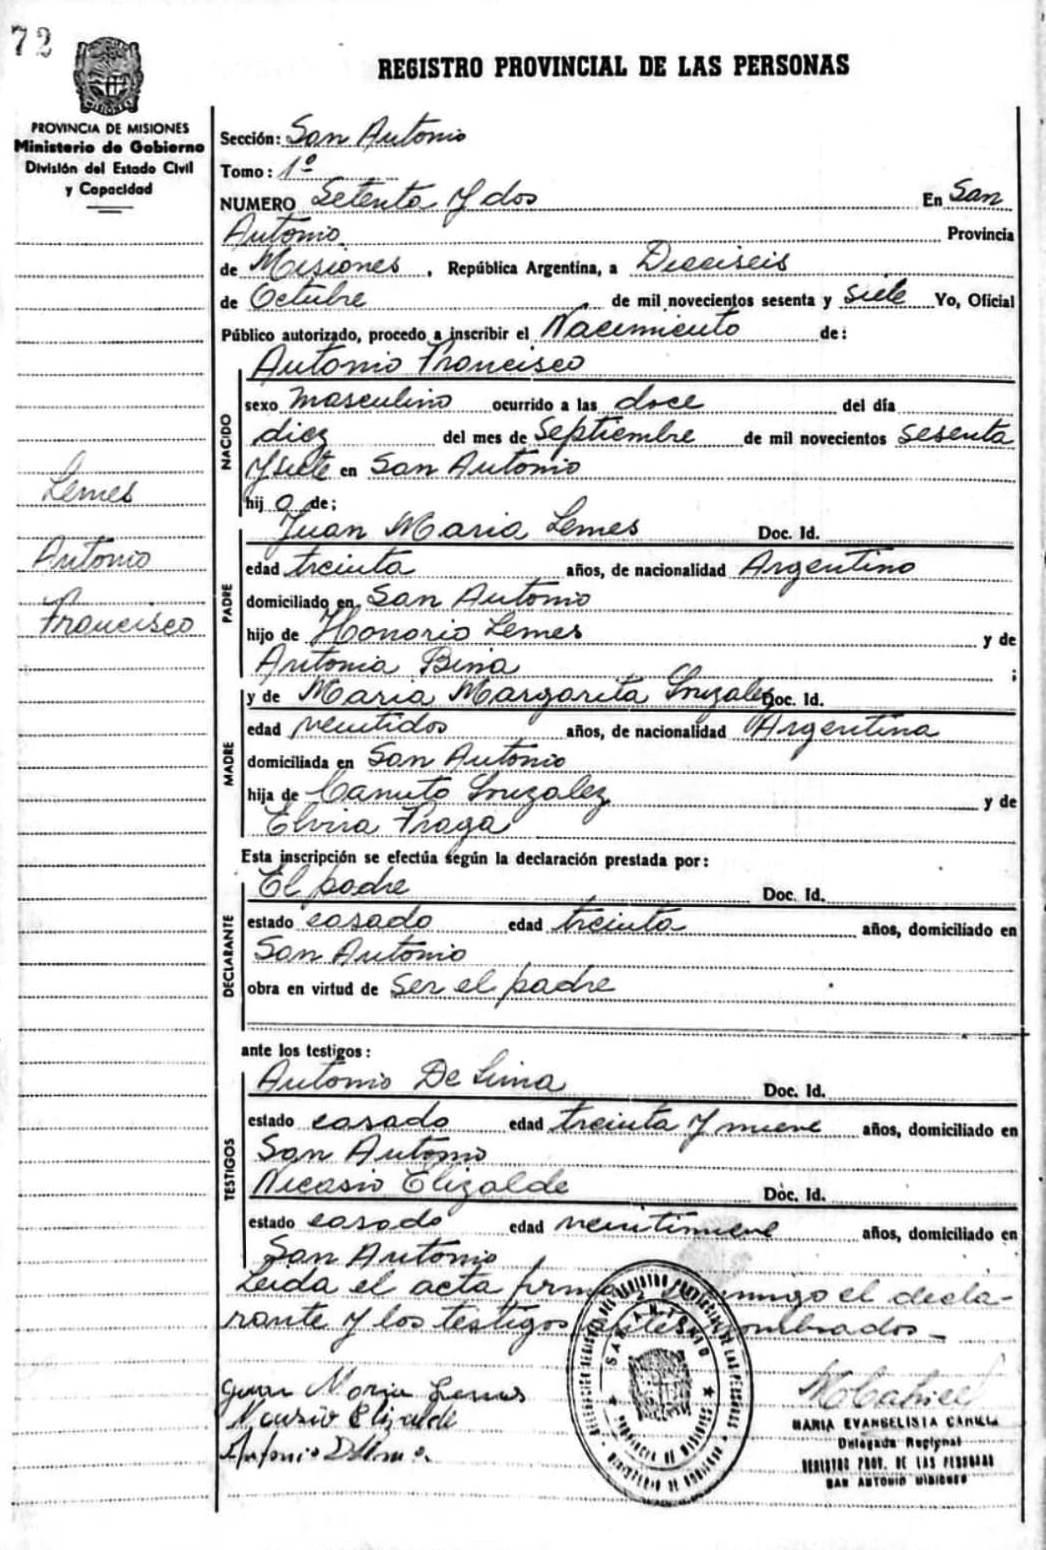 72
REGISTRO PROVINCIAL DE LAS PERSONAS
PROVINCIA DE MISIONES
Ministerio de Gobierno
División del Estado Civil
y Capacidad
Sección: San Antonio
Tomo: 1º
NUMERO Setenta y dos En San
Antonio Provincia
de Misiones, República Argentina, a Dieciseis
de Octubre de mil novecientos sesenta y siete Yo, Oficial
Público autorizado, procedo a inscribir el Nacimiento de:
NACIDO
Antonio Francisco
sexo masculino ocurrido a las doce del día
diez del mes de Septiembre de mil novecientos sesenta
y siete en San Antonio
hij o de;
Lemes
Antonio
Francisco
PADRE
Juan Maria Lemes Doc. Id.
edad treinta años, de nacionalidad Argentino
domiciliado en San Antonio
hijo de Honorio Lemes y de
Antonia Bina ;
MADRE
y de Maria Margarita Gonzalez Doc. Id.
edad veintidos años, de nacionalidad Argentina
domiciliada en San Antonio
hija de Canuto Gonzalez y de
Elvira Fraga
Esta inscripción se efectúa según la declaración prestada por:
DECLARANTE
El padre Doc. Id.
estado casado edad treinta años, domiciliado en
San Antonio
obra en virtud de ser el padre
ante los testigos:
TESTIGOS
Antonio De Lima Doc. Id.
estado casado edad treinta y nueve años, domiciliado en
San Antonio
Nicasio Elizalde Doc. Id.
estado casado edad veintinueve años, domiciliado en
San Antonio
Leida el acta firman conmigo el decla-
rante y los testigos antes nombrados
Juan Maria Lemes
Nicasio Elizalde
Antonio
SAN ANTONIO
PROVINCIA DE MISIONES
MINISTERIO DE GOBIERNO
MARIA EVANGELISTA
Delegada Regional
REGISTRO PROV. DE LAS PERSONAS
SAN ANTONIO MISIONES